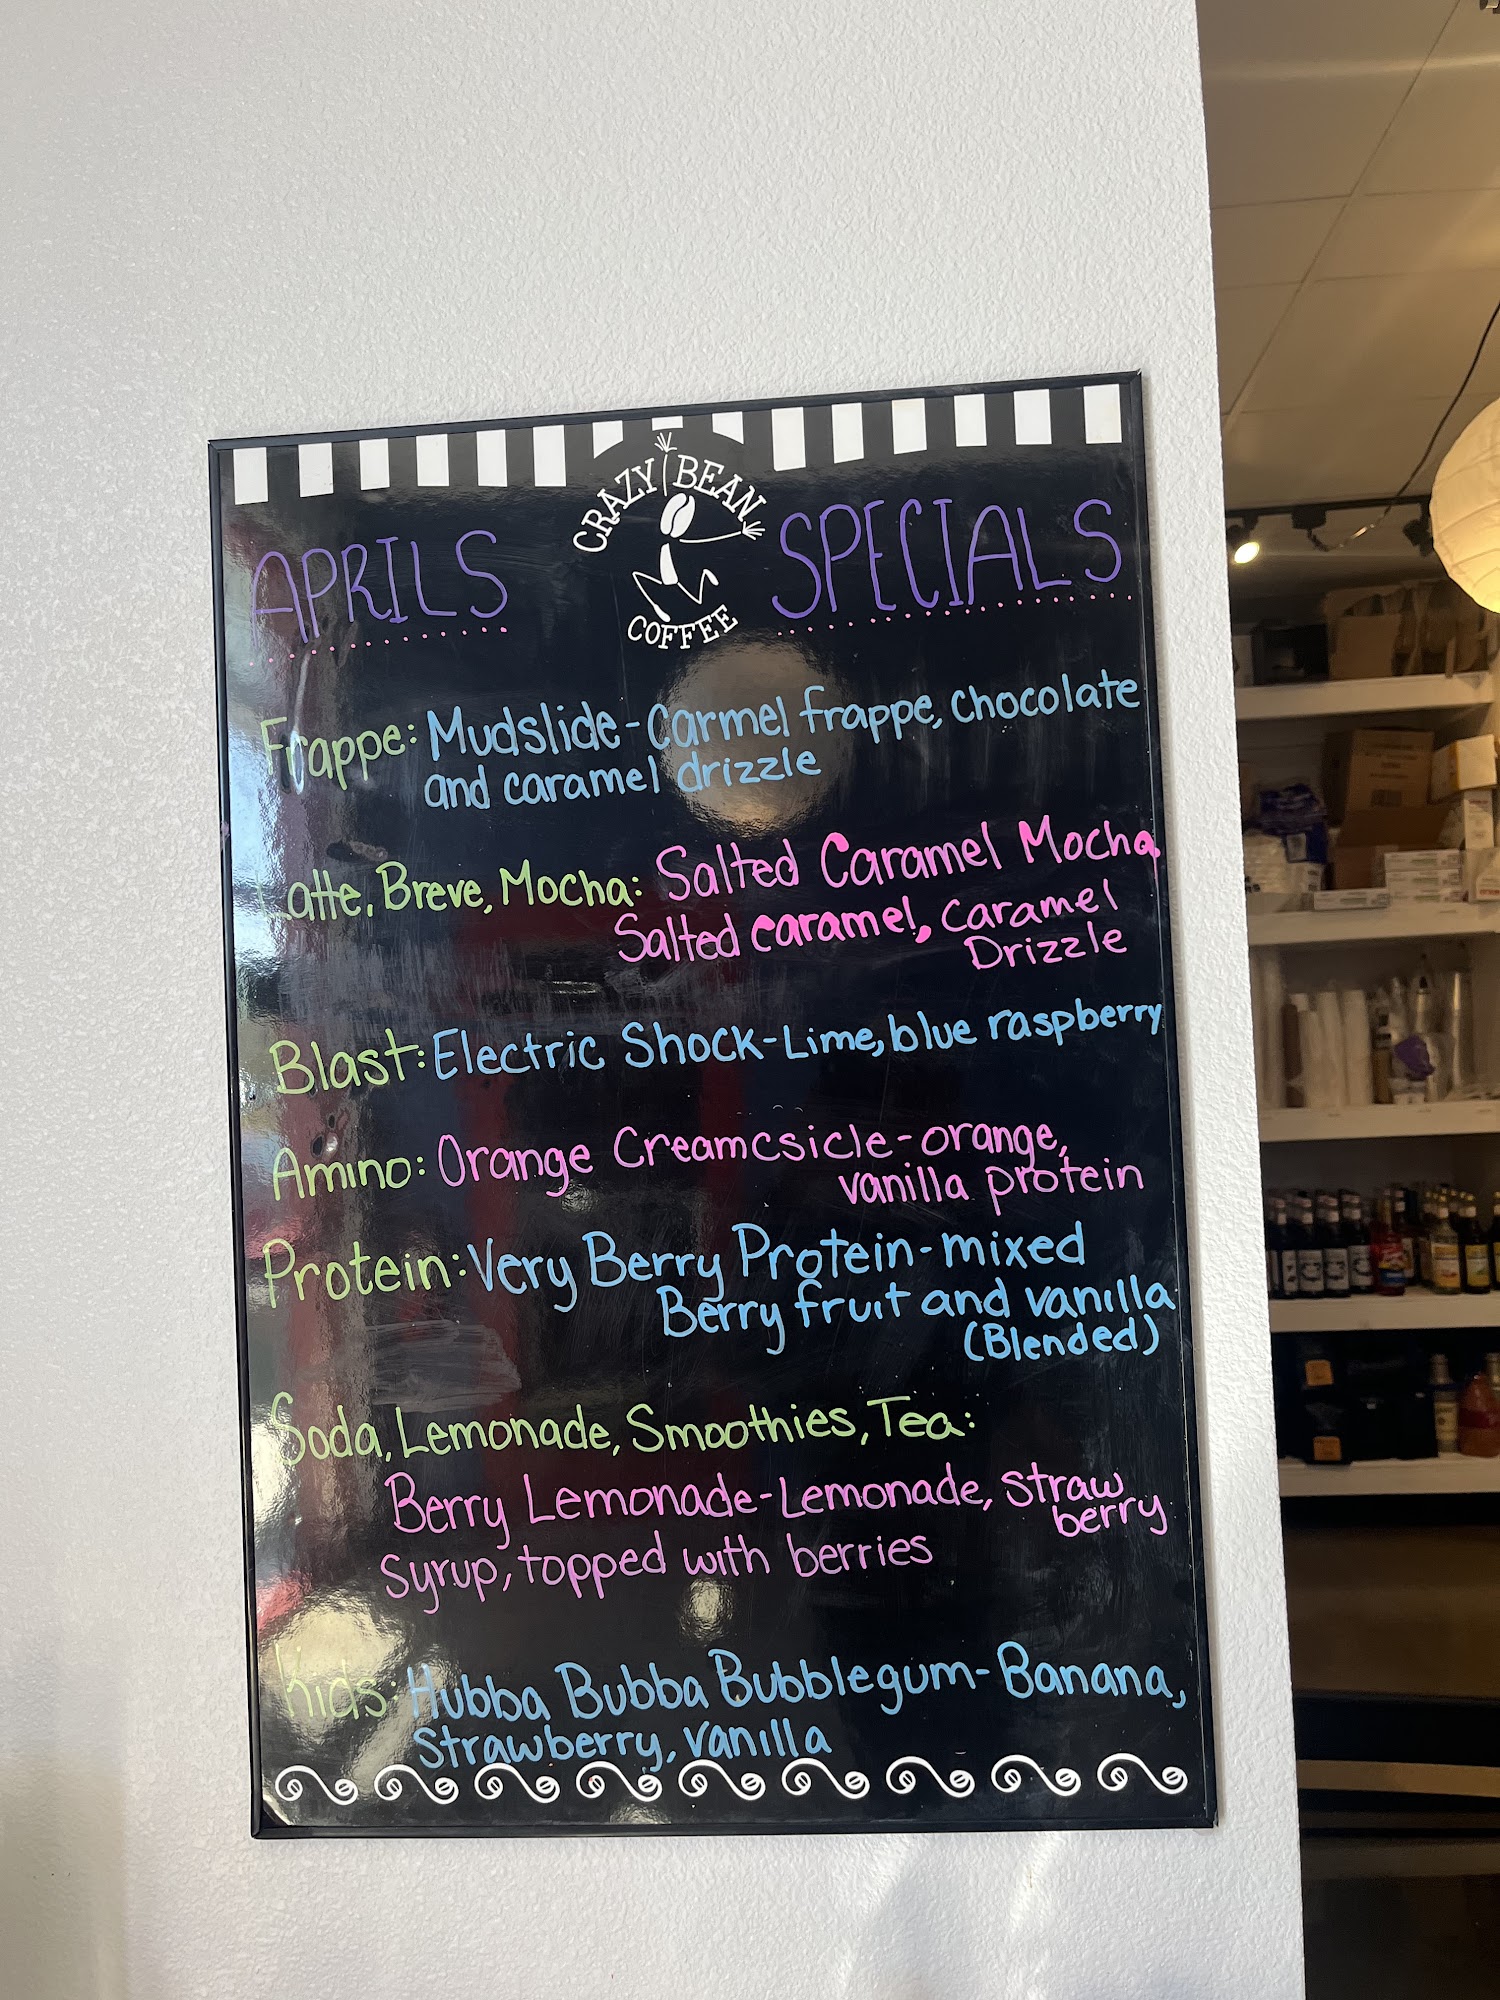 CRAZY BEAN
COFFEE
APRILS SPECIALS
Frappe: Mudslide-Carmel frappe, chocolate
and caramel drizzle
Latte, Breve, Mocha: Salted Caramel Mocha,
Salted caramel, caramel
Drizzle
Blast: Electric Shock-Lime, blue raspberry
Amino: Orange Creamcsicle-orange,
vanilla protein
Protein: Very Berry Protein-mixed
Berry fruit and vanilla
(Blended)
Soda, Lemonade, Smoothies, Tea:
Berry Lemonade-Lemonade, straw
berry
syrup, topped with berries
Kids: Hubba Bubba Bubblegum-Banana,
strawberry, vanilla